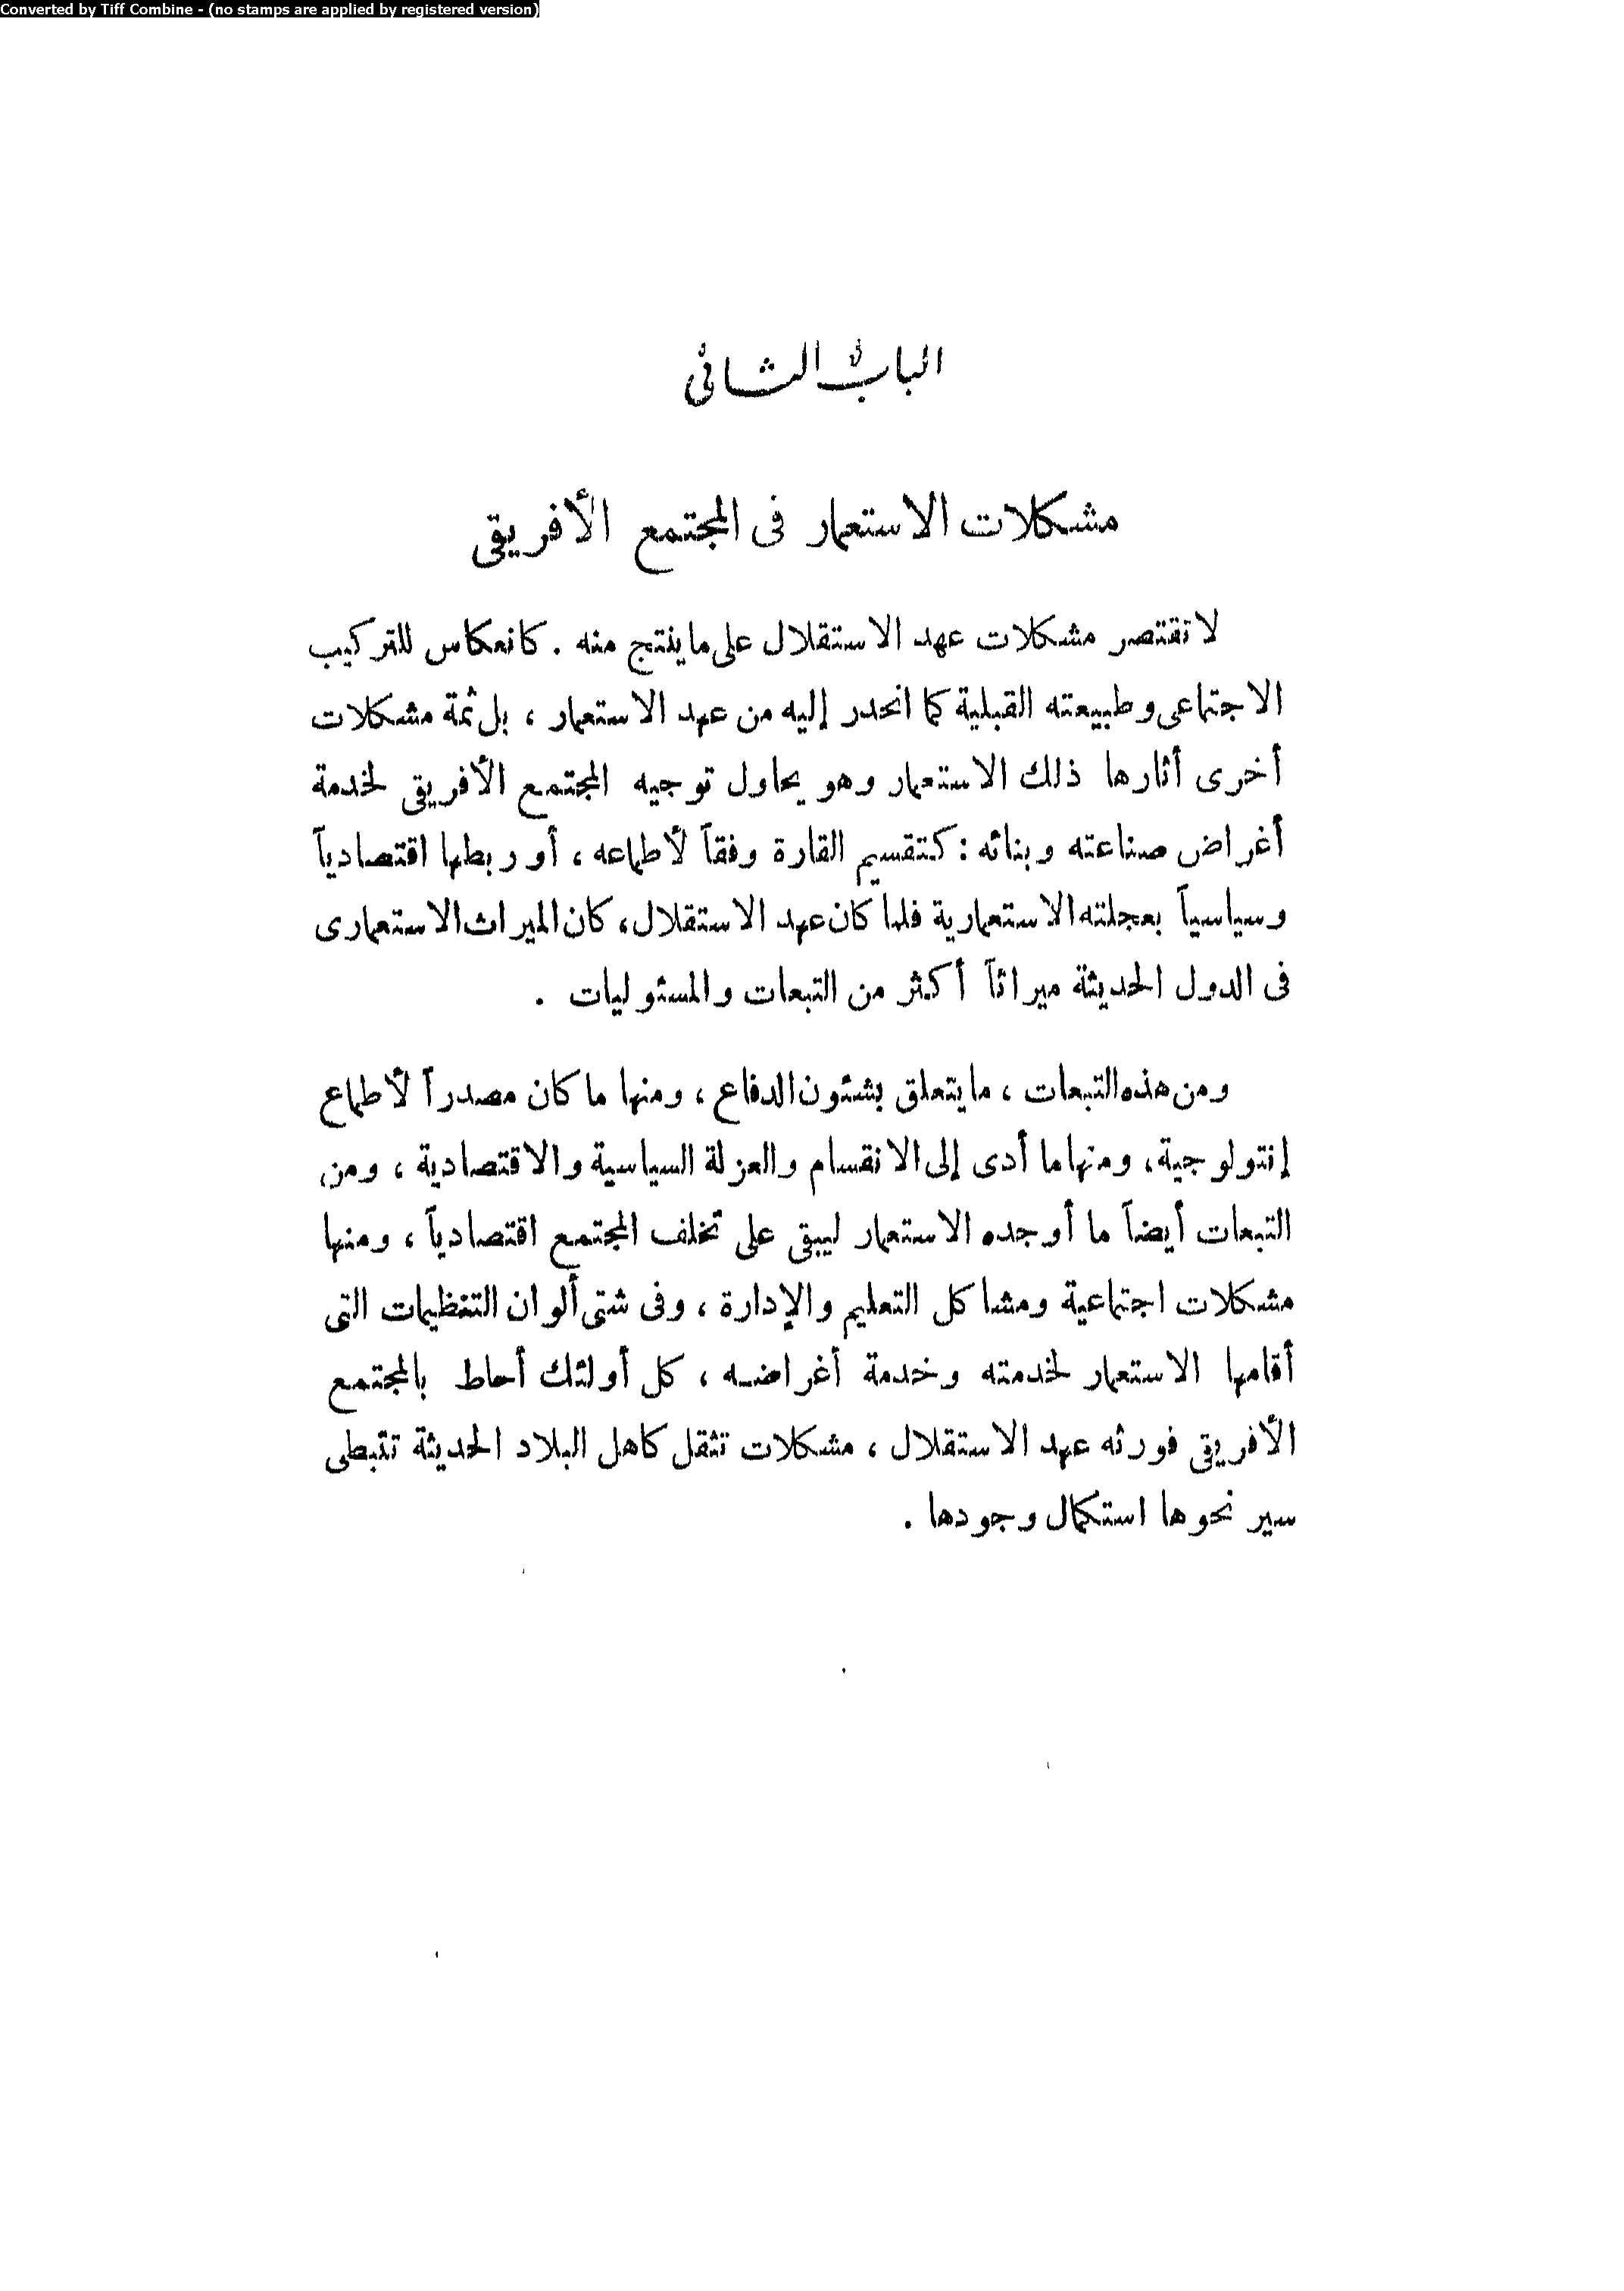 Converted by Tiff Combine - (no stamps are applied by registered version)
الباب الثانى
مشكلات الاستعمار فى المجتمع الأفريقى
لا تقتصر مشكلات عهد الاستقلال على ما ينتج منه . كانعكاس للتركيب
الاجتماعى وطبيعته القبلية كما انحدر إليه من عهد الاستعمار ، بل ثمة مشكلات
أخرى أثارها ذلك الاستعمار وهو يحاول توجيه المجتمع الأفريقى لخدمة
أغراض صناعته وبنائه : كتقسيم القارة وفقاً لأطماعه ، أو ربطها اقتصادياً
وسياسياً بعجلته الاستعمارية فلما كان عهد الاستقلال ، كان الميراث الاستعمارى
فى الدول الحديثة ميراثاً أكثر من التبعات والمسئوليات .
ومن هذه التبعات ، ما يتعلق بشئون الدفاع ، ومنها ما كان مصدراً لأطماع
إنتولوجية ، ومنها ما أدى إلى الانقسام والعزلة السياسية والاقتصادية ، ومن
التبعات أيضاً ما أوجده الاستعمار ليبقى على تخلف المجتمع اقتصادياً ، ومنها
مشكلات اجتماعية ومشاكل التعليم والإدارة ، وفى شتى ألوان التنظيمات التى
أقامها الاستعمار لخدمته وخدمة أغراضه ، كل أولئك أحاط بالمجتمع
الأفريقى فورثه عهد الاستقلال ، مشكلات تثقل كاهل البلاد الحديثة تتبطى
سير نحوها استكمال وجودها .